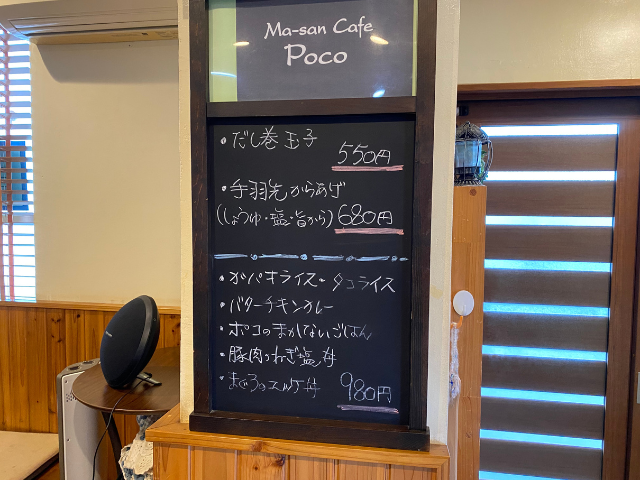 Ma-san Cafe
Poco
・だし巻玉子
550円
・手羽先からあげ
(しょうゆ・塩・旨から) 680円
・ガパオライス・タコライス
・バターチキンカレー
・ポコのまかないごはん
・豚肉のねぎ塩丼
・まぐろのユッケ丼
980円